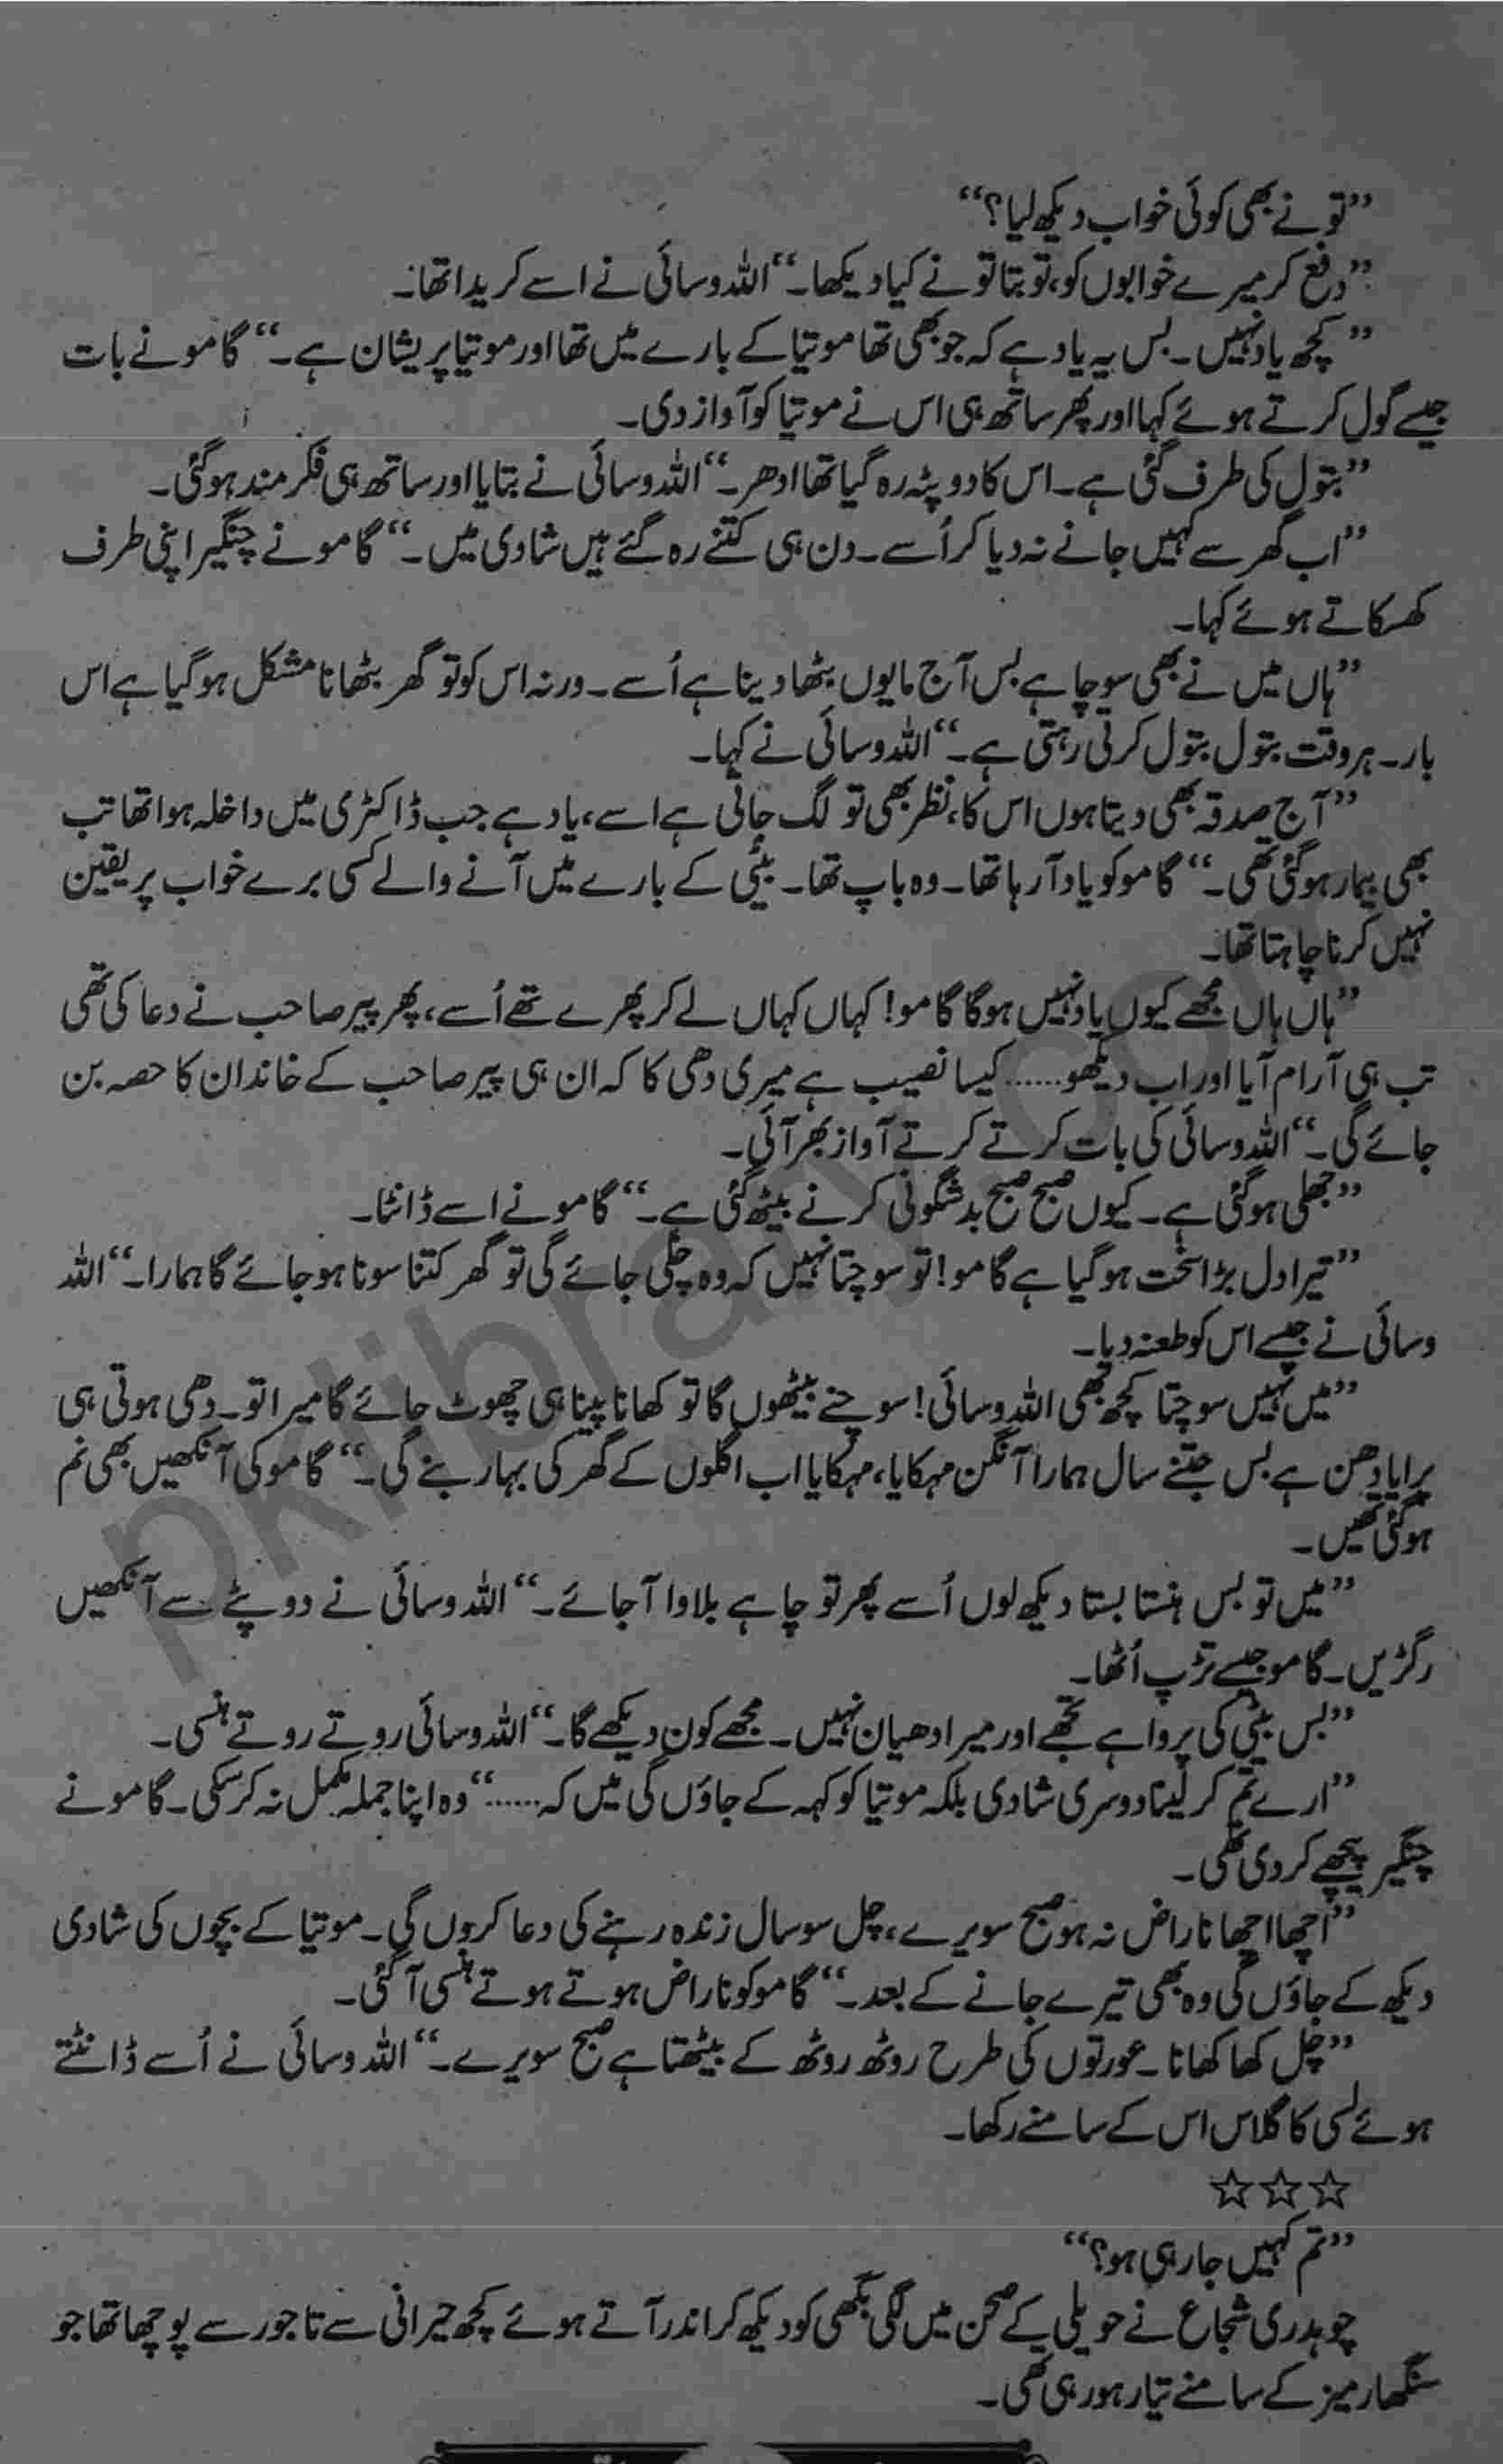 ”تو نے بھی کوئی خواب دیکھ لیا؟“
”دفع کر میرے خوابوں کو، تو بتا تو نے کیا دیکھا۔“ اللہ وسائی نے اسے کریدا تھا۔
”کچھ یاد نہیں۔ بس یہ یاد ہے کہ جو بھی تھا موتیا کے بارے میں تھا اور موتیا پریشان ہے۔“ گامو نے بات
جیسے گول کرتے ہوئے کہا اور پھر ساتھ ہی اس نے موتیا کو آواز دی۔
”بتول کی طرف گئی ہے۔ اس کا دوپٹہ رہ گیا تھا ادھر۔“ اللہ وسائی نے بتایا اور ساتھ ہی فکر مند ہو گئی۔
”اب گھر سے کہیں جانے نہ دیا کر اُسے۔ دن ہی کتنے رہ گئے ہیں شادی میں۔“ گامو نے چنگیر اپنی طرف
کھسکاتے ہوئے کہا۔
”ہاں میں نے بھی سوچا ہے بس آج مایوں بٹھا دینا ہے اُسے۔ ورنہ اس کو تو گھر بٹھانا مشکل ہو گیا ہے اس
بار۔ ہر وقت بتول بتول کرتی رہتی ہے۔“ اللہ وسائی نے کہا۔
”آج صدقہ بھی دیتا ہوں اس کا، نظر بھی تو لگ جاتی ہے اسے، یاد ہے جب ڈاکٹری میں داخلہ ہوا تھا تب
بھی بیمار ہو گئی تھی۔“ گامو کو یاد آ رہا تھا۔ وہ باپ تھا۔ بیٹی کے بارے میں آنے والے کسی برے خواب پر یقین
نہیں کرنا چاہتا تھا۔
”ہاں ہاں مجھے کیوں یاد نہیں ہوگا گامو! کہاں کہاں لے کر پھرے تھے اُسے، پھر پیر صاحب نے دعا کی تھی
تب ہی آرام آیا اور اب دیکھو...... کیسا نصیب ہے میری دھی کا کہ ان ہی پیر صاحب کے خاندان کا حصہ بن
جائے گی۔“ اللہ وسائی کی بات کرتے کرتے آواز بھر آئی۔
”جھلی ہو گئی ہے۔ کیوں صبح صبح بدشگونی کرنے بیٹھ گئی ہے۔“ گامو نے اسے ڈانٹا۔
”تیرا دل بڑا سخت ہو گیا ہے گامو! تو سوچتا نہیں کہ وہ چلی جائے گی تو گھر کتنا سونا ہو جائے گا ہمارا۔“ اللہ
وسائی نے جیسے اس کو طعنہ دیا۔
”میں نہیں سوچتا کچھ بھی اللہ وسائی! سوچنے بیٹھوں گا تو کھانا پینا ہی چھوٹ جائے گا میرا تو۔ دھی ہوتی ہی
پرایا دھن ہے بس جتنے سال ہمارا آنگن مہکایا، مہکایا اب اگلوں کے گھر کی بہار بنے گی۔“ گامو کی آنکھیں بھی نم
ہو گئی تھیں۔
”میں تو بس ہنستا بستا دیکھ لوں اُسے پھر تو چاہے بلاوا آ جائے۔“ اللہ وسائی نے دوپٹے سے آنکھیں
رگڑیں۔ گامو جیسے تڑپ اُٹھا۔
”بس بیٹی کی پروا ہے تجھے اور میرا دھیان نہیں۔ مجھے کون دیکھے گا۔“ اللہ وسائی روتے روتے ہنسی۔
”ارے تم کر لینا دوسری شادی بلکہ موتیا کو کہہ کے جاؤں گی میں کہ......“ وہ اپنا جملہ مکمل نہ کر سکی۔ گامو نے
چنگیر پیچھے کر دی تھی۔
”اچھا اچھا ناراض نہ ہو صبح سویرے، چل سو سال زندہ رہنے کی دعا کروں گی۔ موتیا کے بچوں کی شادی
دیکھ کے جاؤں گی وہ بھی تیرے جانے کے بعد۔“ گامو کو ناراض ہوتے ہوتے ہنسی آ گئی۔
”چل کھا کھانا۔ عورتوں کی طرح روٹھ روٹھ کے بیٹھتا ہے صبح سویرے۔“ اللہ وسائی نے اُسے ڈانٹتے
ہوئے لسی کا گلاس اس کے سامنے رکھا۔
☆☆☆
”تم کہیں جا رہی ہو؟“
چوہدری شجاع نے حویلی کے صحن میں لگی بگھی کو دیکھ کر اندر آتے ہوئے کچھ حیرانی سے تاجور سے پوچھا تھا جو
سنگھار میز کے سامنے تیار ہو رہی تھی۔